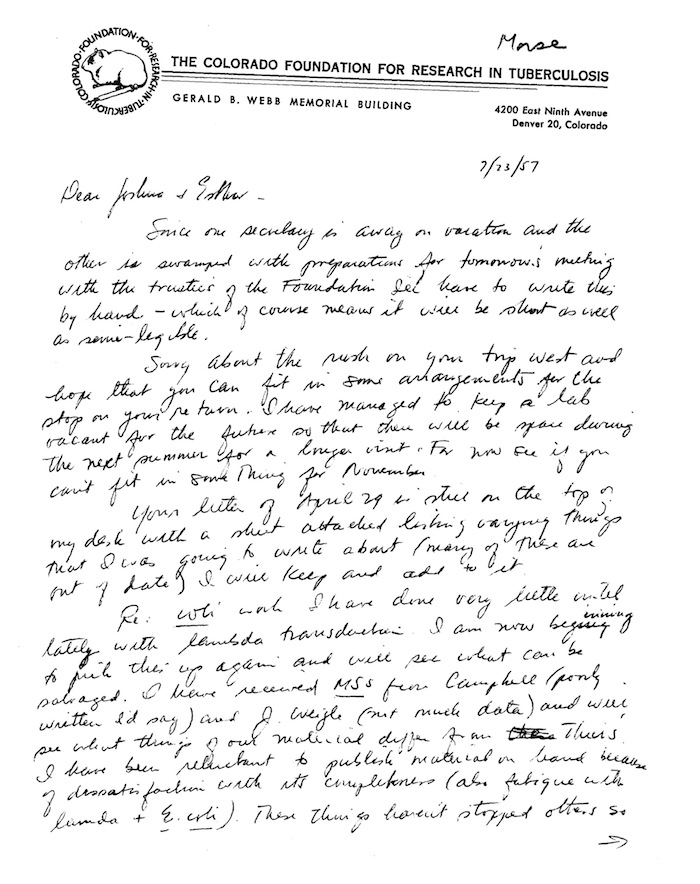 Morse
COLORADO·FOUNDATION·FOR·RESEARCH·IN·TUBERCULOSIS
THE COLORADO FOUNDATION FOR RESEARCH IN TUBERCULOSIS
GERALD B. WEBB MEMORIAL BUILDING
4200 East Ninth Avenue
Denver 20, Colorado
7/23/57
Dear Joshua + Esther -
Since one secretary is away on vacation and the
other is swamped with preparations for tomorrow's meeting
with the trustees of the Foundation I'll have to write this
by hand - which of course means it will be short as well
as semi-legible.
Sorry about the rush on your trip west and
hope that you can fit in some arrangements for the
stop on your return. I have managed to keep a lab
vacant for the future so that there will be space during
the next summer for a longer visit. For now see if you
can't fit in something for November.
Your letter of April 29 is still on the top of
my desk with a sheet attached listing varying things
that I was going to write about (many of these are
out of date) I will keep and add to it.
Re: coli work I have done very little until
lately with lambda transduction. I am now beginning
to pick this up again and will see what can be
salvaged. I have received MSS from Campbell (poorly
written I'd say) and J. Weigle (not much data) and will
see what things of our material differ from theirs.
I have been reluctant to publish material on hand because
of dissatisfaction with its completeness (also fatigue with
lamda + E. coli). These things haven't stopped others so
→